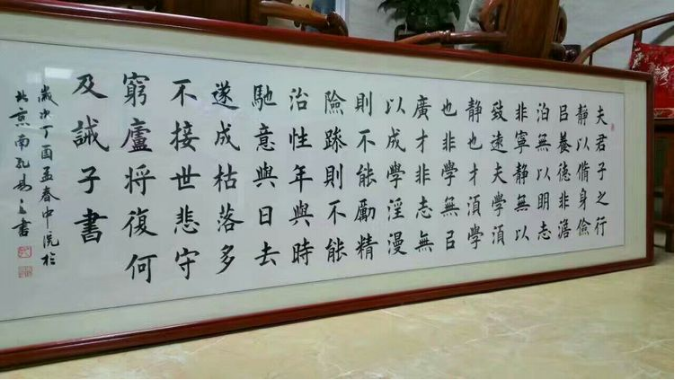 夫君子之行
靜以脩身儉
㠯養德非澹
泊無以明志
非寧靜無以
致遠夫學須
靜也才須學
也非學無㠯
廣才非志無
以成學淫漫
則不能勵精
險躁則不能
治性年與時
馳意與日去
遂成枯落多
不接世悲守
窮廬將復何
及誡子書
歲次丁酉孟春中浣於
北京南孔書